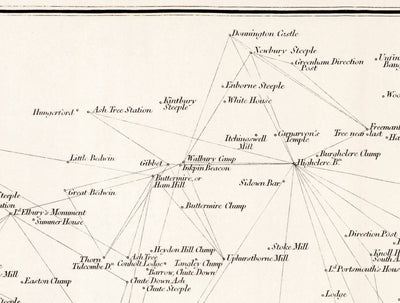 Donnington Castle
Newbury Steeple
Greenham Direction
Post
Enborne Steeple
White House
Kintbury
Steeple
Hungerford
Ash Tree Station
Itchingswell
Mill
Garnarvon's
Temple
Tree near last
Freemant
Burghclere Clump
Highclere Bn.
Little Bedwin
Gibbet
Walbury Camp
Inkpin Beacon
Buttermire, or
Ham Hill
Sidown Bar
Great Bedwin
Buttermire Clump
Steeple
Ld. Elbury's Monument
Summer House
Direction Post
Knoll H
South A
Heydon Hill Clump
Stoke Mill
Thorn
Tidcombe Dn.
Ash Tree
Conholt Lodge
Tangley Clump
Uphursborne Mill
Ld. Portsmouth's Hou
Barrow, Chute Down
Chute Down Ash
Chute Steeple
Mill
Easton Clump
Lodge